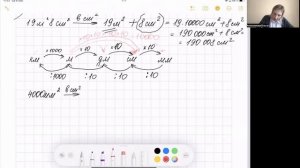 19 м² 8 см² в см² → 19 м² + (8 см²) = 19·10000 см² + 8 см² =
= 190 000 см² + 8 см² =
= 190 008 см²
×1000 ×10 ×10 ×10
км м дм см мм
:1000 :10 :10 :10
4000 мм² в см² →